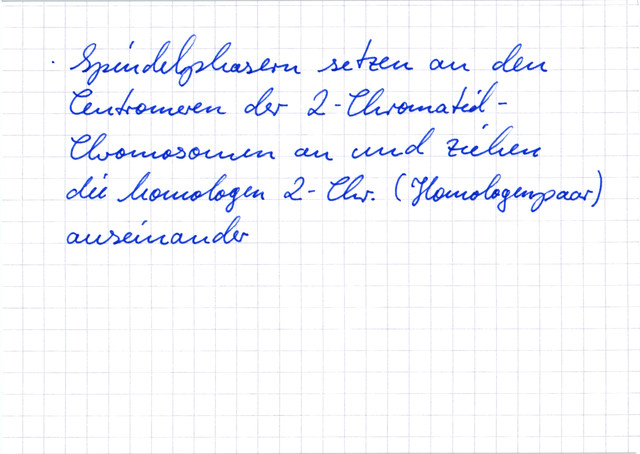 · Spindelphasern setzen an den
Centromeren der 2-Chromatid-
Chromosomen an und ziehen
die homologen 2-Chr. (Homologenpaar)
auseinander